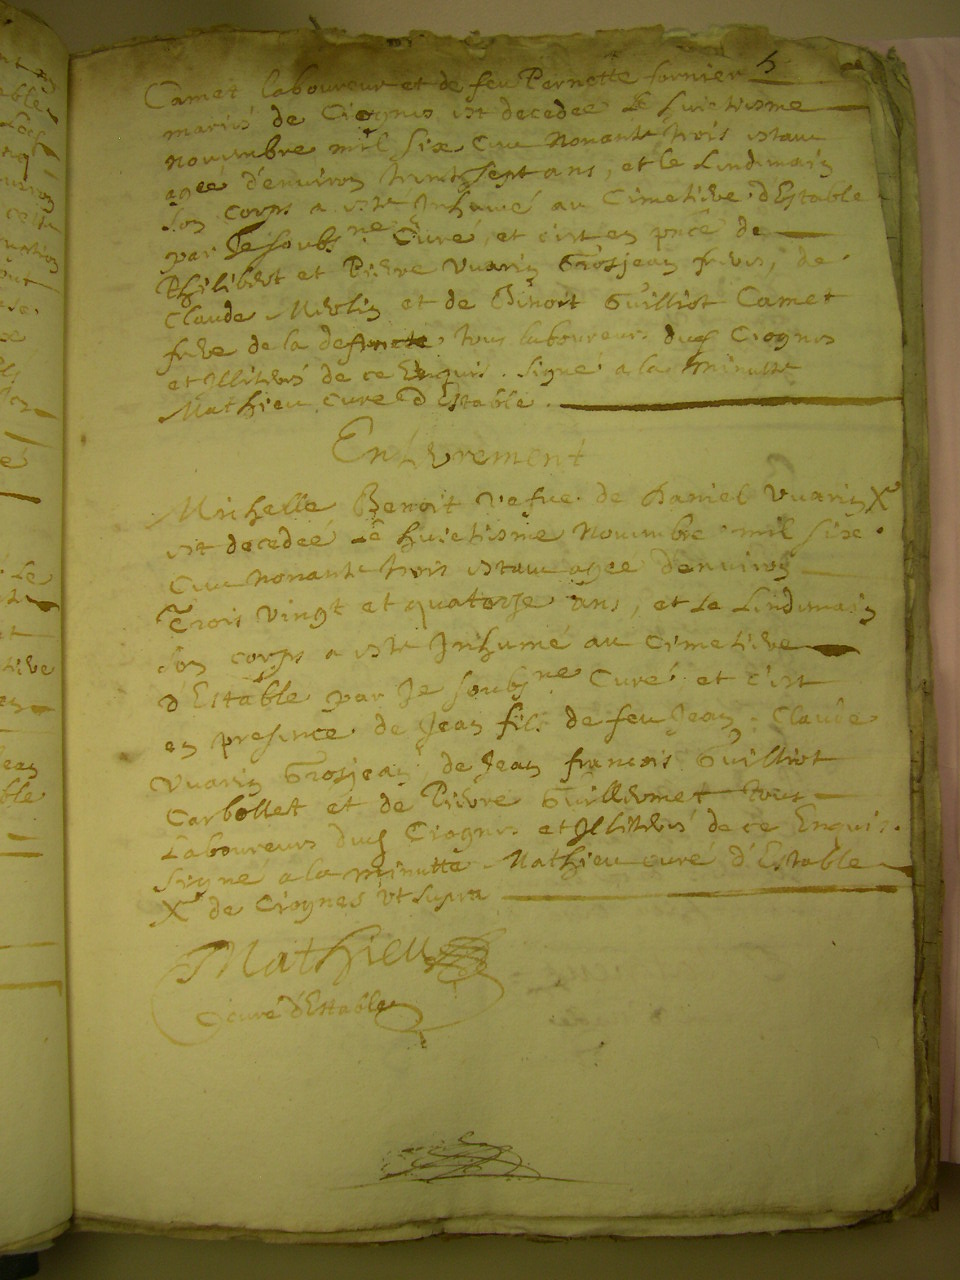 5
Camet laboureur et de feu Pernette fornier
mariés de Ciognes est decedée Le huictiesme
novembre mil Six Cent Nonante trois estant
agée d'environ trente sept ans, et le Lindemain
Son Corps a esté Inhumé au Cimetiere d'Estable
par Je soubs.né Curé, et c'est en pnce de
Philibert et Pierre Vuarin Grosjean freres, de
Claude Merlin et de Benoit Guilliot Camet
frere de la deffuncte tous laboureurs dud Ciognes
et Illiterés de ce Enquis. Signé a la minutte
Mathieu Curé d'Estable.
Enterrement
Michelle Benoit vefve de Daniel Vuarin X
est decedée Le huictiesme Novembre mil Six
Cent nonante trois estant agée d'environ
Trois vingt et quatorze ans, et Le Lindemain
son corps a esté Inhumé au Cimetiere
d'Estable par Je soubsne Curé et c'est
en presence de Jean fils de feu Jean Claude
Vuarin Grosjean, de Jean françois Guilliot
Carbollet et de Pierre Guillermet tous
Laboureurs dud Ciognes et Illiterés de ce Enquis.
Signé a la minutte Mathieu curé d'Estable
X de Ciognes ut supra
Mathieu
curé d'Estable